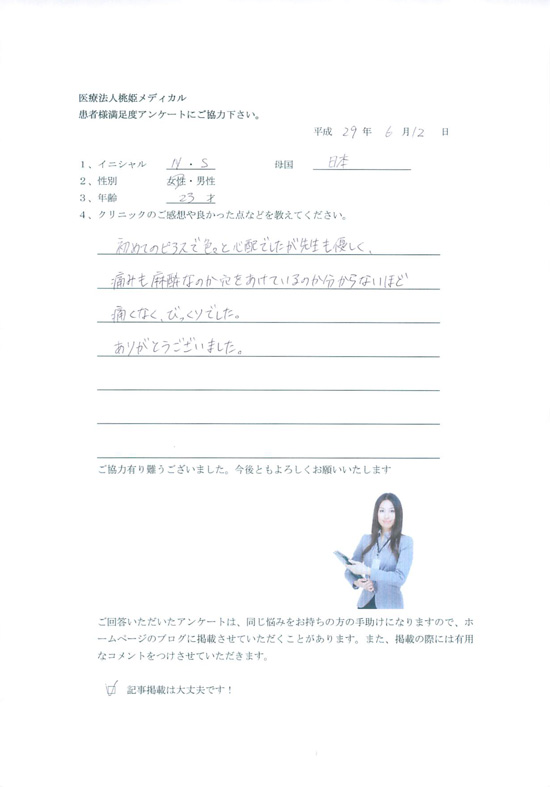 医療法人桃姫メディカル
患者様満足度アンケートにご協力下さい。
平成 29 年 6 月12 日
1、イニシャル N・S 母国 日本
2、性別 女性・男性
3、年齢 23 才
4、クリニックのご感想や良かった点などを教えてください。
初めてのピアスで色々と心配でしたが先生も優しく、
痛みも麻酔なのか穴をあけているのか分からないほど
痛くなく、びっくりでした。
ありがとうございました。
ご協力有り難うございました。今後ともよろしくお願いいたします
ご回答いただいたアンケートは、同じ悩みをお持ちの方の手助けになりますので、ホ
ームページのブログに掲載させていただくことがあります。また、掲載の際には有用
なコメントをつけさせていただきます。
☑ 記事掲載は大丈夫です！